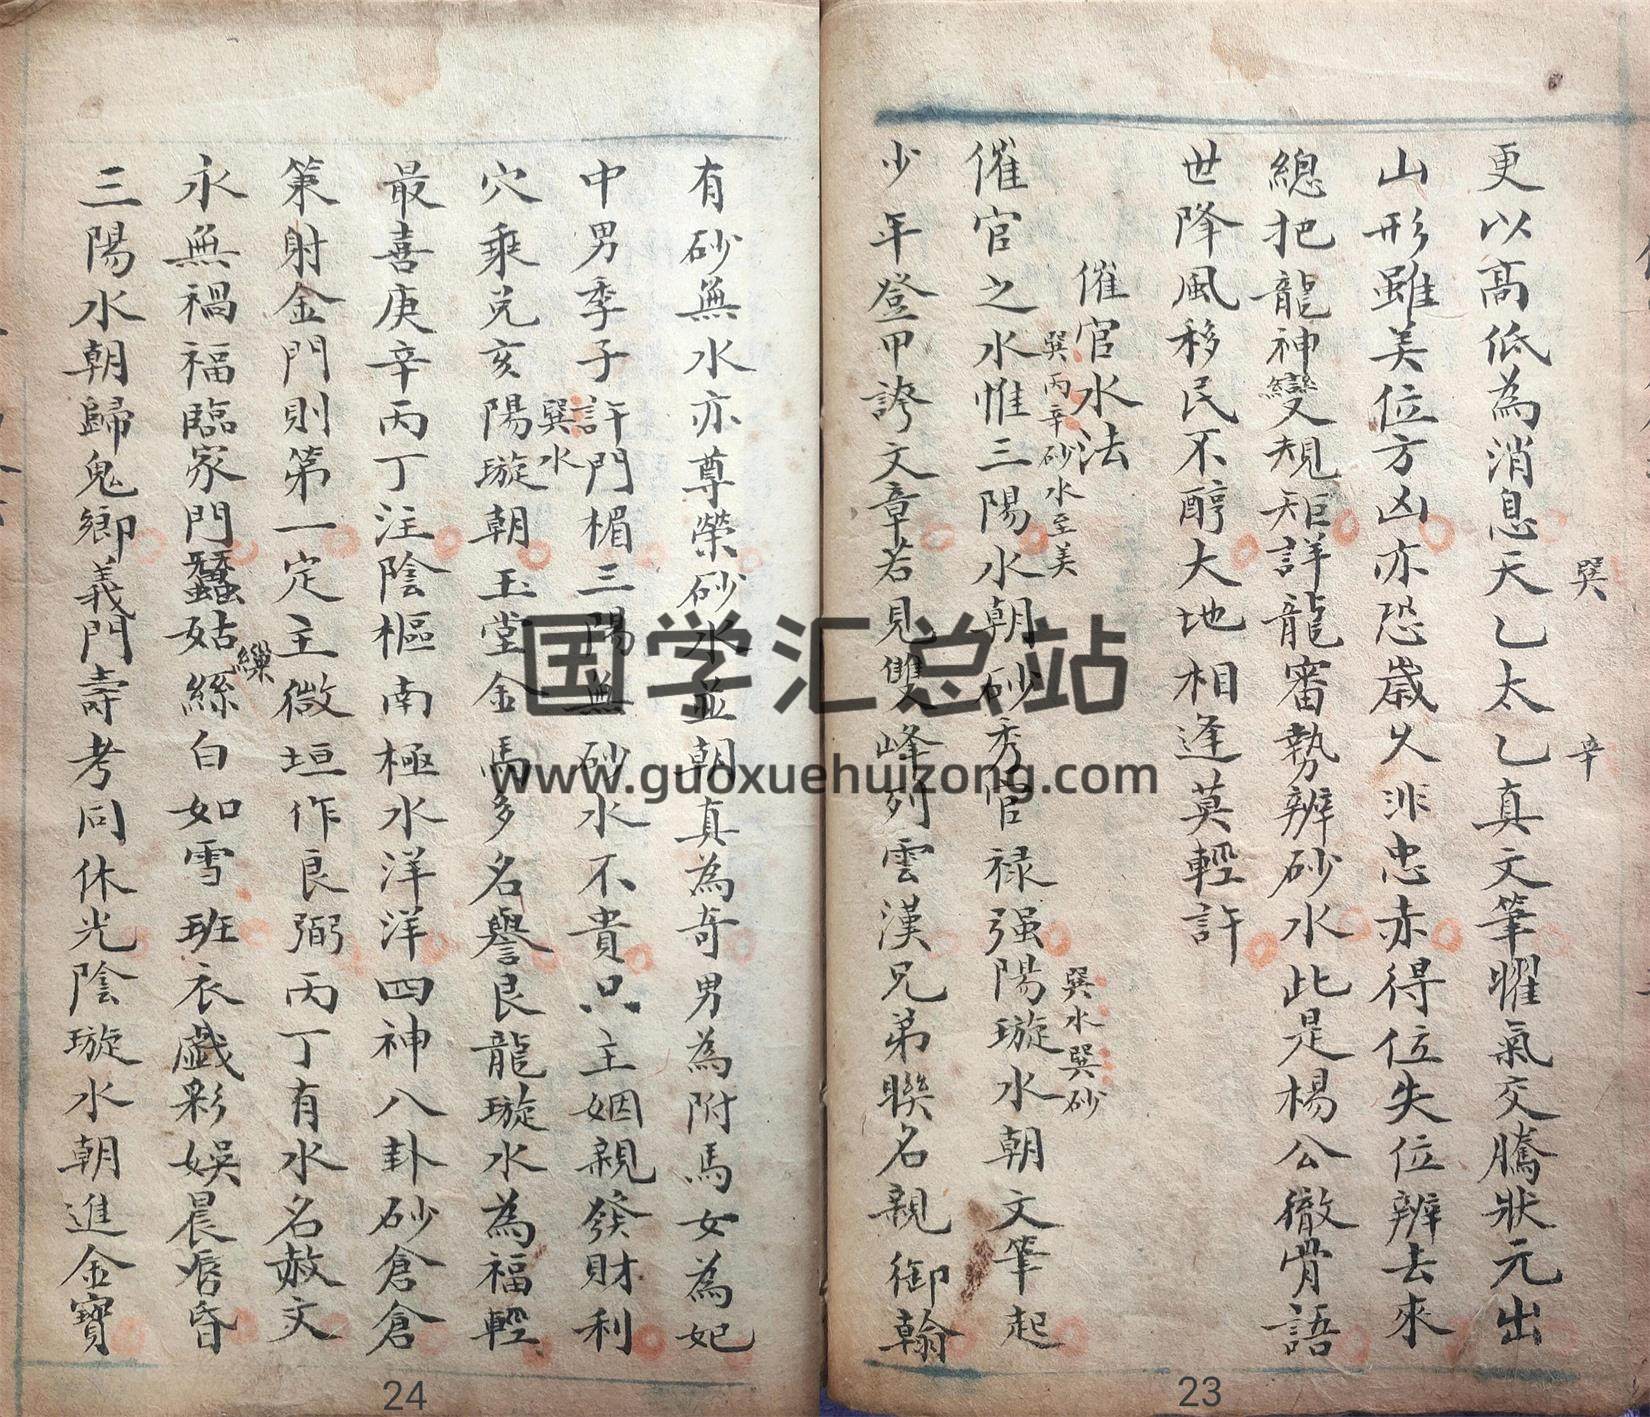 巽
辛
更以高低為消息天乙太乙真文筆曜氣交騰狀元出
山形雖美位方凶亦恐歲久非忠赤得位失位辨去來
總把龍神變規矩詳龍審勢辨砂水此是楊公徹骨語
世降風移民不醇大地相逢莫輕許
催官水法
巽丙辛砂水至美
巽水巽砂
催官之水惟三陽水朝砂秀官祿强陽璇水朝文筆起
少年登甲誇文章若見雙峰列雲漢兄弟聯名親御翰
23
有砂無水亦尊榮砂水並朝真為奇男為附馬女為妃
中男季子許門楣三陽無砂水不貴只主姻親發財利
巽水
穴乘兌亥陽璇朝玉堂金馬多名譽艮龍璇水為福輕
最喜庚辛丙丁注陰樞南極水洋洋四神八卦砂倉倉
策射金門則第一定主微垣作良弼丙丁有水名赦文
繅
永無禍福臨家門蠶姑絲白如雪班衣戲彩娛晨昏
三陽水朝歸鬼鄉義門壽考同休光陰璇水朝進金寶
24
国学汇总站
www.guoxuehuizong.com